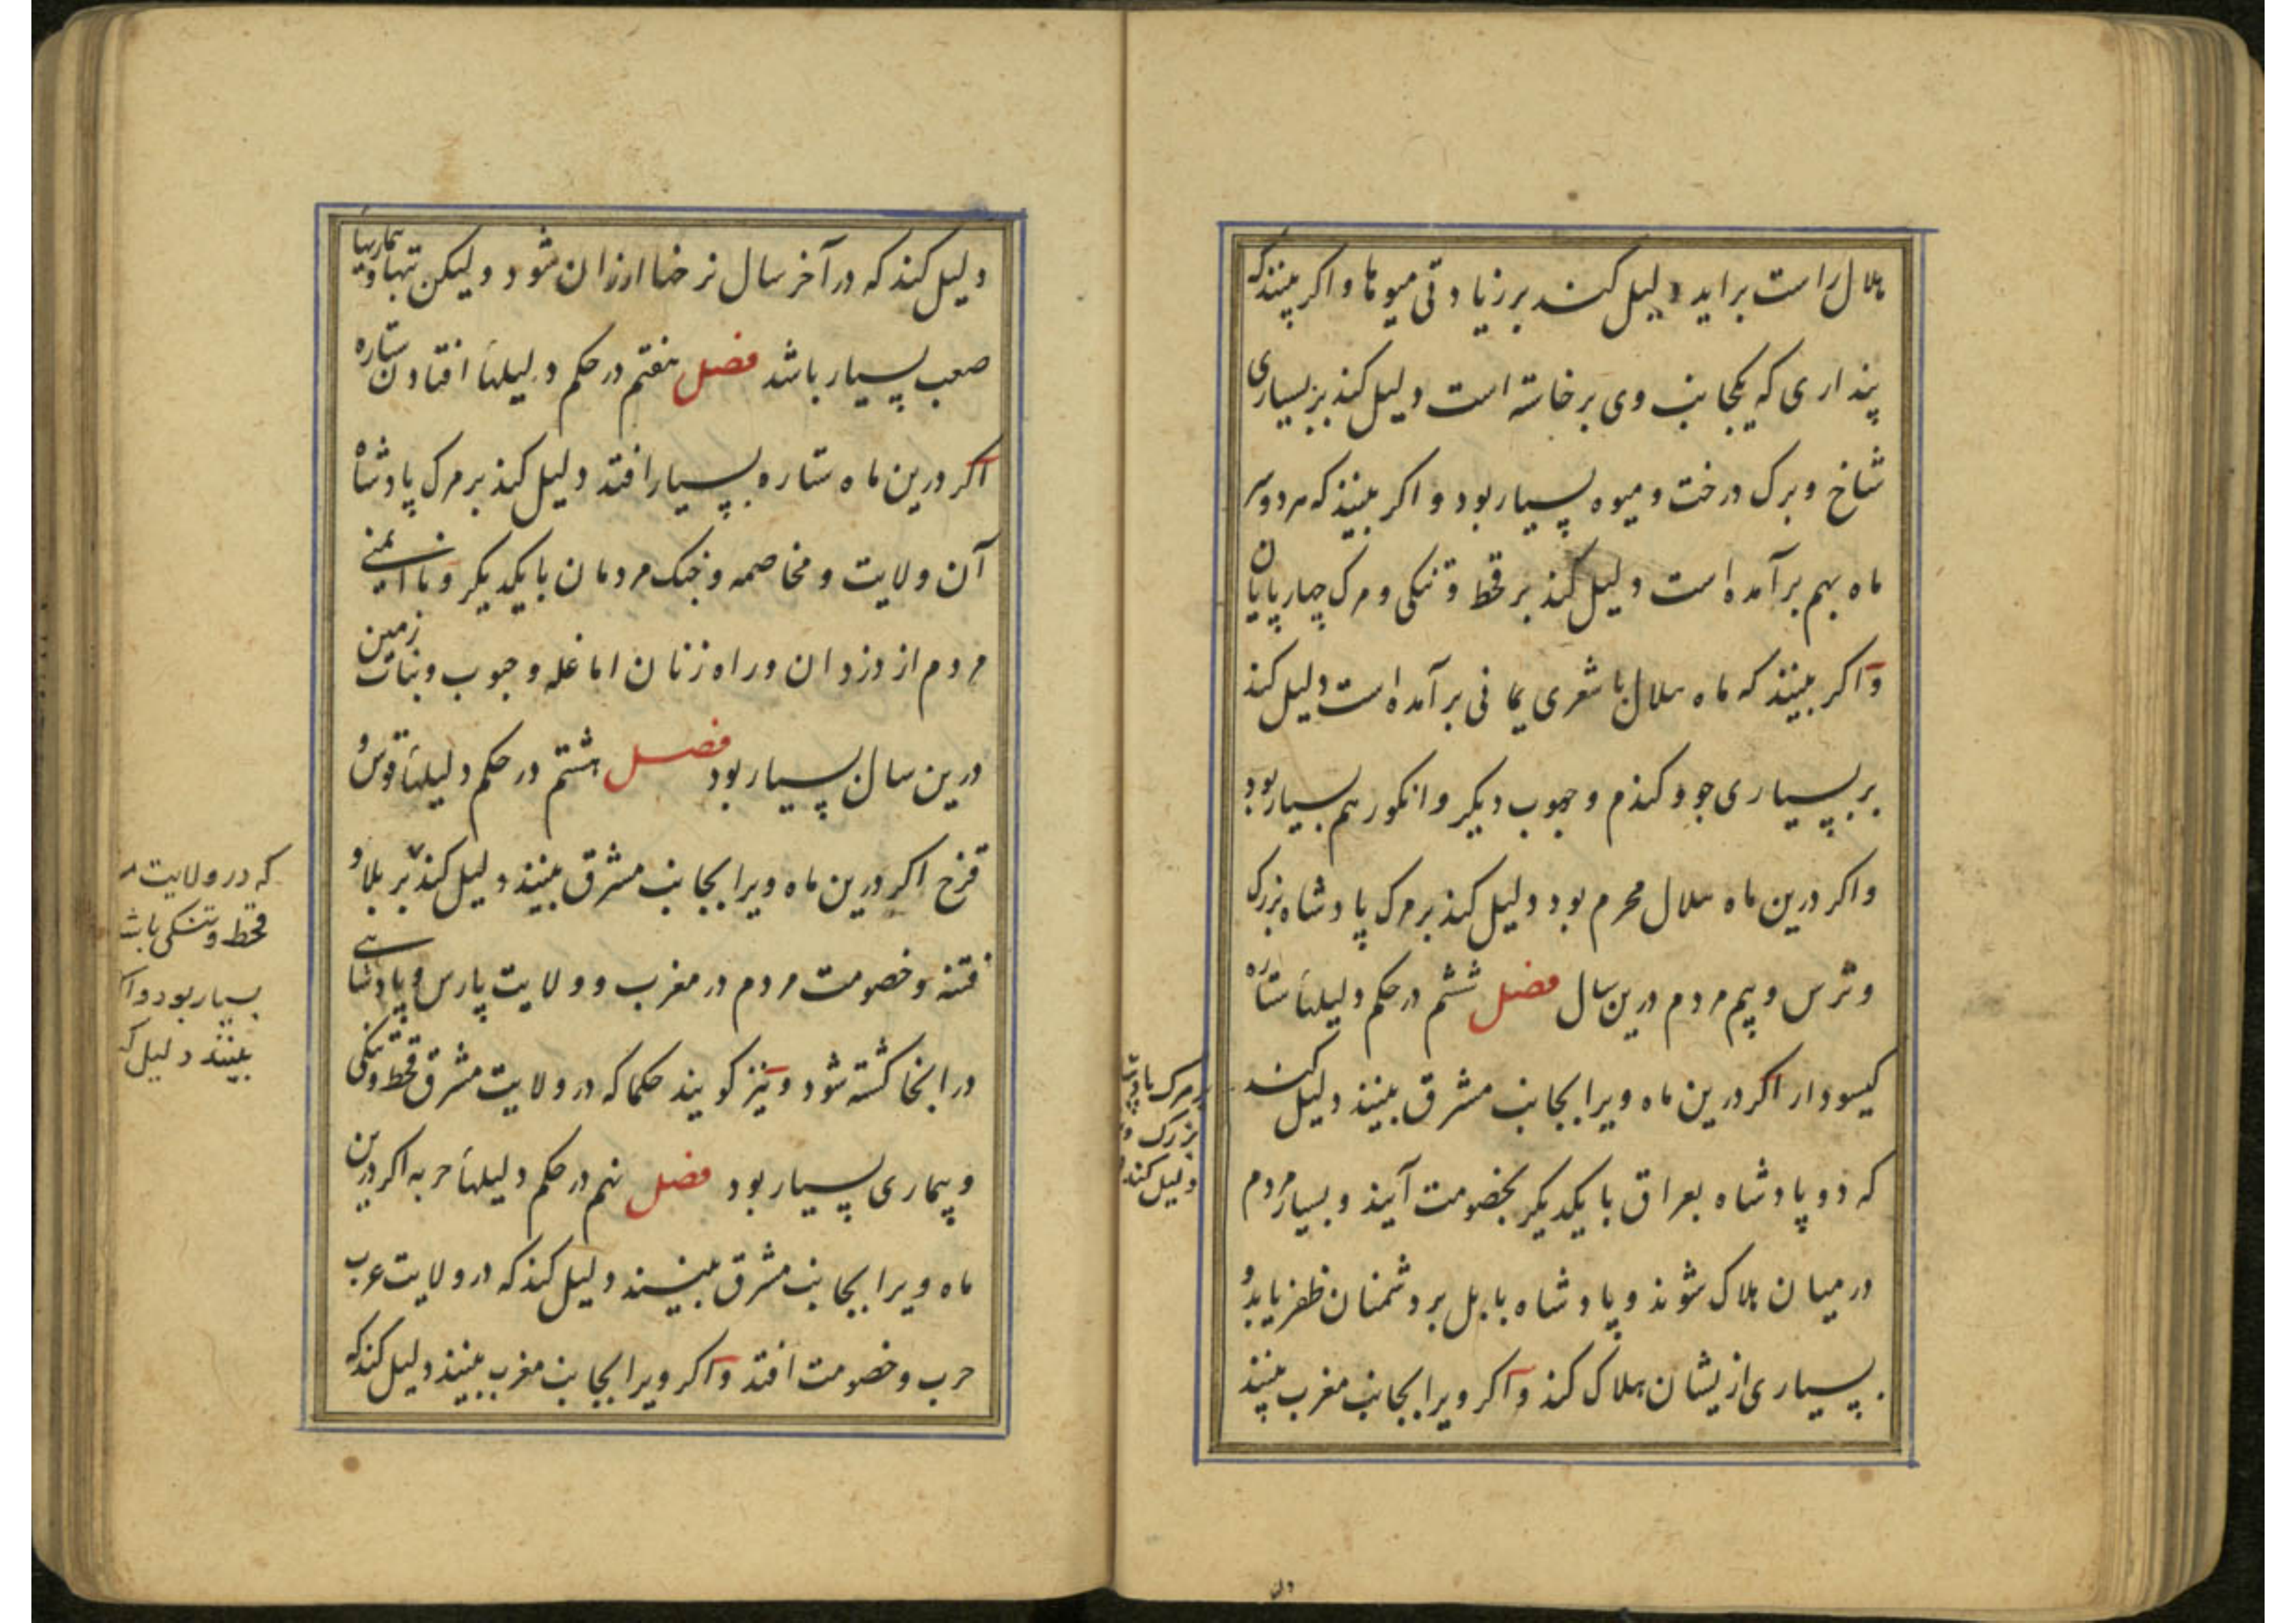 هلال راست براید دلیل کند بر زیادتی میوها و اکر بینند که
پنداری که یکجانب وی برخاسته است دلیل کند بر بسیاری
شاخ و برک درخت و میوه بسیار بود و اکر بینند که هر دو سر
ماه بهم برآمده است دلیل کند بر قحط و تنکی و مرک چهارپایان
و اکر بینند که ماه هلال با شعری یمانی برآمده است دلیل کند
بر بسیاری جو و کندم و حبوب دیکر و انکور هم بسیار بود
و اکر درین ماه هلال محرم بود دلیل کند بر مرک پادشاه بزرک
و ترس و بیم مردم درین سال فصل ششم در حکم دلیلهاء ستاره
کیسودار اکر درین ماه ویرا بجانب مشرق بینند دلیل کند
که دو پادشاه بعراق با یکدیکر بخصومت آیند و بسیار مردم
در میان هلاک شوند و پادشاه بابل بر دشمنان ظفر یابد و
بسیاری ازیشان هلاک کند و اکر ویرا بجانب مغرب بینند
بر مرک پادشا
بزرک و
دلیل کند
دلیل کند که در آخر سال نرخها ارزان شود ولیکن تبها و بیماریها
صعب بسیار باشد فصل هفتم در حکم دلیلهاء افتادن ستاره
اکر درین ماه ستاره بسیار افتد دلیل کند بر مرک پادشاه
آن ولایت و مخاصمه و جنک مردمان با یکدیکر و ناایمنی
مردم از دزدان و راه زنان اما غله و حبوب و نبات زمین
درین سال بسیار بود فصل هشتم در حکم دلیلهاء قوس و
قزح اکر درین ماه ویرا بجانب مشرق بینند دلیل کند بر بلا و
فتنه و خصومت مردم در مغرب و ولایت پارس و پادشاهی
در انجا کشته شود و نیز کویند حکما که در ولایت مشرق قحط و تنکی
و بیماری بسیار بود فصل نهم در حکم دلیلهاء حربه اکر درین
ماه ویرا بجانب مشرق بینند دلیل کند که در ولایت عرب
حرب و خصومت افتد و اکر ویرا بجانب مغرب بینند دلیل کند که
که در ولایت
قحط و تنکی باشد
بسیار بود و اکر
بینند دلیل کـ